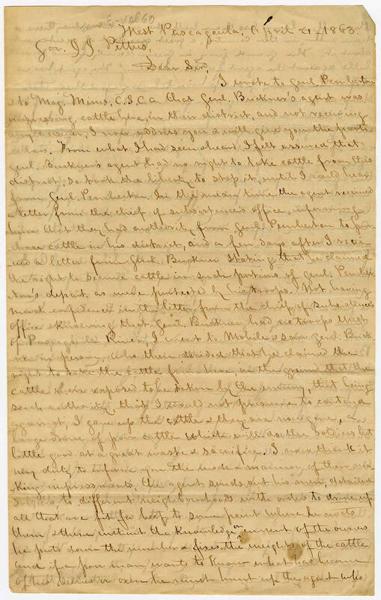 West Pascagoula, April 21, 1863.
Gov. J. J. Pettus,
Dear Sir,
I wrote to Genl. Pemberton
& Maj. Mims, C.S.C.a that Genl. Buckner's agent was
impressing cattle here, in their district, and not receiving
I now address you & will give you the particu-
lars. From what I had seen & heard I felt assured that
Genl. Buckner's agent had no right to take cattle from this
district, so took the liberty to stop it, until I could hear
from Genl. Pemberton. In the mean time the agent received
a letter from the chief of subsistence's office, informing
him that they had authority from Genl. Pemberton to pur-
chase cattle in his district, and a few days after I recei-
ved a letter from Genl. Buckner stating that he claimed
the right to secure cattle in such portions of Genl. Pember-
ton's district, as were protected by his troops. Not having
much confidence in the letter from the chief of subsistence
office & knowing that Genl. Buckner had no troops this side
of Pascagoula River, I went to Mobile & saw Genl. Buck-
ner in person, who there decided that he claimed the
right to take the cattle from here, on the ground that the
cattle were exposed to be taken by the enemy, that being
such authority that I would not presume to contend
against, I gave up the cattle & they are now gone, a
large drove of poor cattle which will do the soldiers but
little good at a great waste & sacrifice. I now think it
my duty to inform you the mode & manner of their ma-
king impressments, the agent sends out his armed, detailed
soldiers to different neighborhoods with orders to drive up
all that are fit for beef to some point where he meets
them & there without the knowledge or consent of the owners
he puts down the number & fixes the weight of the cattle
and if a poor man wants to know what has become
of his he must hunt up the agent who